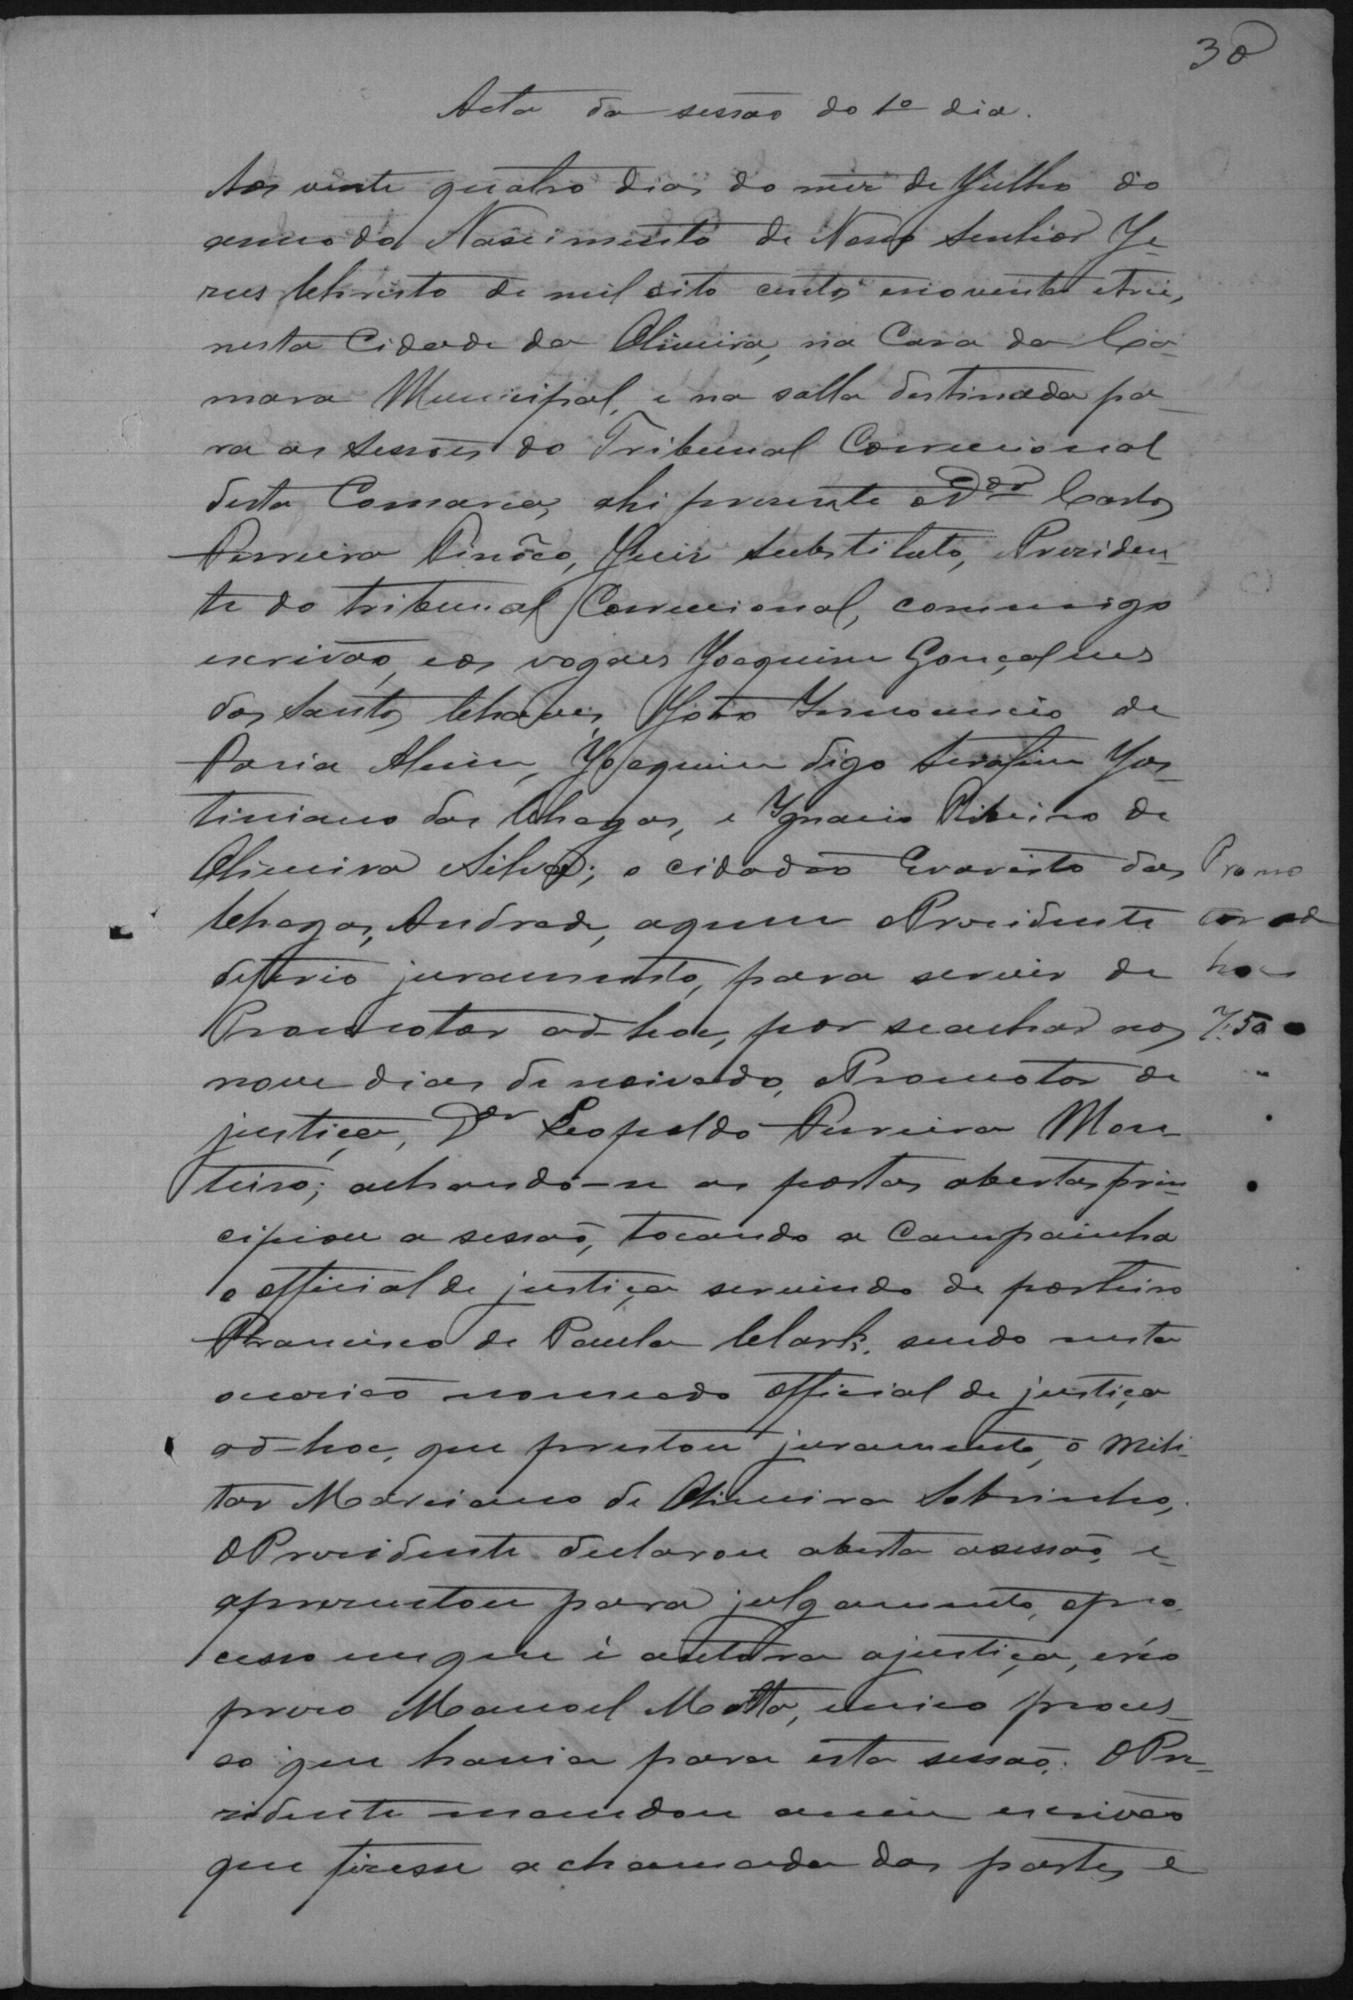 30
Acta da sessão do 1º dia.
Aos vinte quatro dias do mez de Julho do
anno do Nascimento de Nosso Senhor Je-
zus Christo de mil oito centos e noventa e tres,
nesta Cidade da Oliveira, na Casa da Ca-
mara Municipal, e na salla destinada pa-
ra as sessões do Tribunal Correcional
desta Comarca, ahi presente o Dor Carlos
Ferreira Tinôco, Juiz Substituto, Preziden-
te do tribunal Correcional, commigo
escrivão, e os vogaes Joaquim Gonçalves
dos Santos Chaves, João Innocencio de
Faria Alvim, Joaquim digo Serafim Jos-
tiniano das Chagas, e Ignacio Ribeiro de
Oliveira e Silva; o cidadão Evaristo das
Chagas Andrade, a quem o Prezidente
deferio juramento, para servir de
Promotor ad-hoc, por se achar nos
nove dias de noivado, o Promotor de
justiça, Dr Leopoldo Ferreira Mon-
teiro; achando-se as portas abertas prin-
cipiou a sessão, tocando a campainha
o official de justiça servindo de porteiro
Francisco de Paula Clark, sendo nesta
occasião nomeado official de justiça
ad-hoc, que prestou juramento, o Mili-
tar Marciano de Oliveira Sobrinho,
O Prezidente declarou aberta a sessão, e
aprezentou para julgamento, o pro
cesso em que é autora a justiça, e réo
prezo Manoel Motta, unico proces-
so que havia para esta sessão. O Pre-
zidente mandou a mim escrivão
que fizesse a chamada das partes, e
Promo
tor ad
hoc
7.50